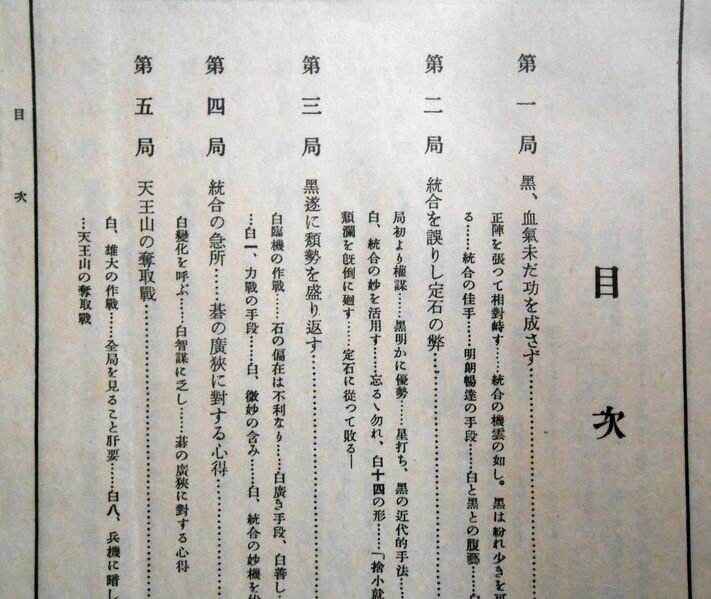 目次
第一局 黑、血氣未だ功を成さず……………
正陣を張つて相對峙す……統合の機雲の如し。黑は紛れ少きを
る……統合の佳手……明朗暢達の手段……白と黑との腹藝……
第二局 統合を誤りし定石の弊……………
局初より權謀……黑明かに優勢……星打ち、黑の近代的手法……
白、統合の妙を活用す……忘るゝ勿れ、白十四の形……「捨小就
頽瀾を旣倒に廻す……定石に從つて敗る―
第三局 黑遂に頽勢を盛り返す……………
白臨機の作戰……石の偏在は不利なり……白廣き手段、白善し…
…白一、力戰の手段……白、微妙の含み……白、統合の妙機を
第四局 統合の急所……碁の廣狹に對する心得……………
白變化を呼ぶ……白智謀に乏し……碁の廣狹に對する心得
第五局 天王山の奪取戰……………
白、雄大の作戰……全局を見ること肝要……白八、兵機に暗し
…天王山の奪取戰
目次